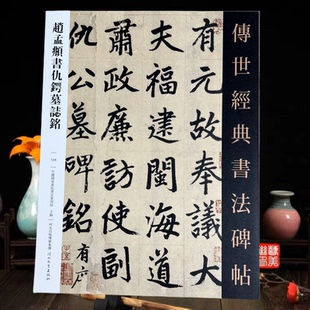 傳世經典書法碑帖
趙孟頫書仇鍔墓誌銘
有元故奉議大
夫福建閩海道
肅政廉訪使副
仇公墓碑銘有序